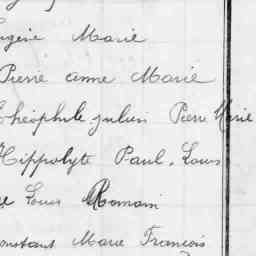 Marie
Pierre anne Marie
Théophile julien Pierre Marie
Hippolyte Paul. Louis
Louis Romain
Constant Marie François